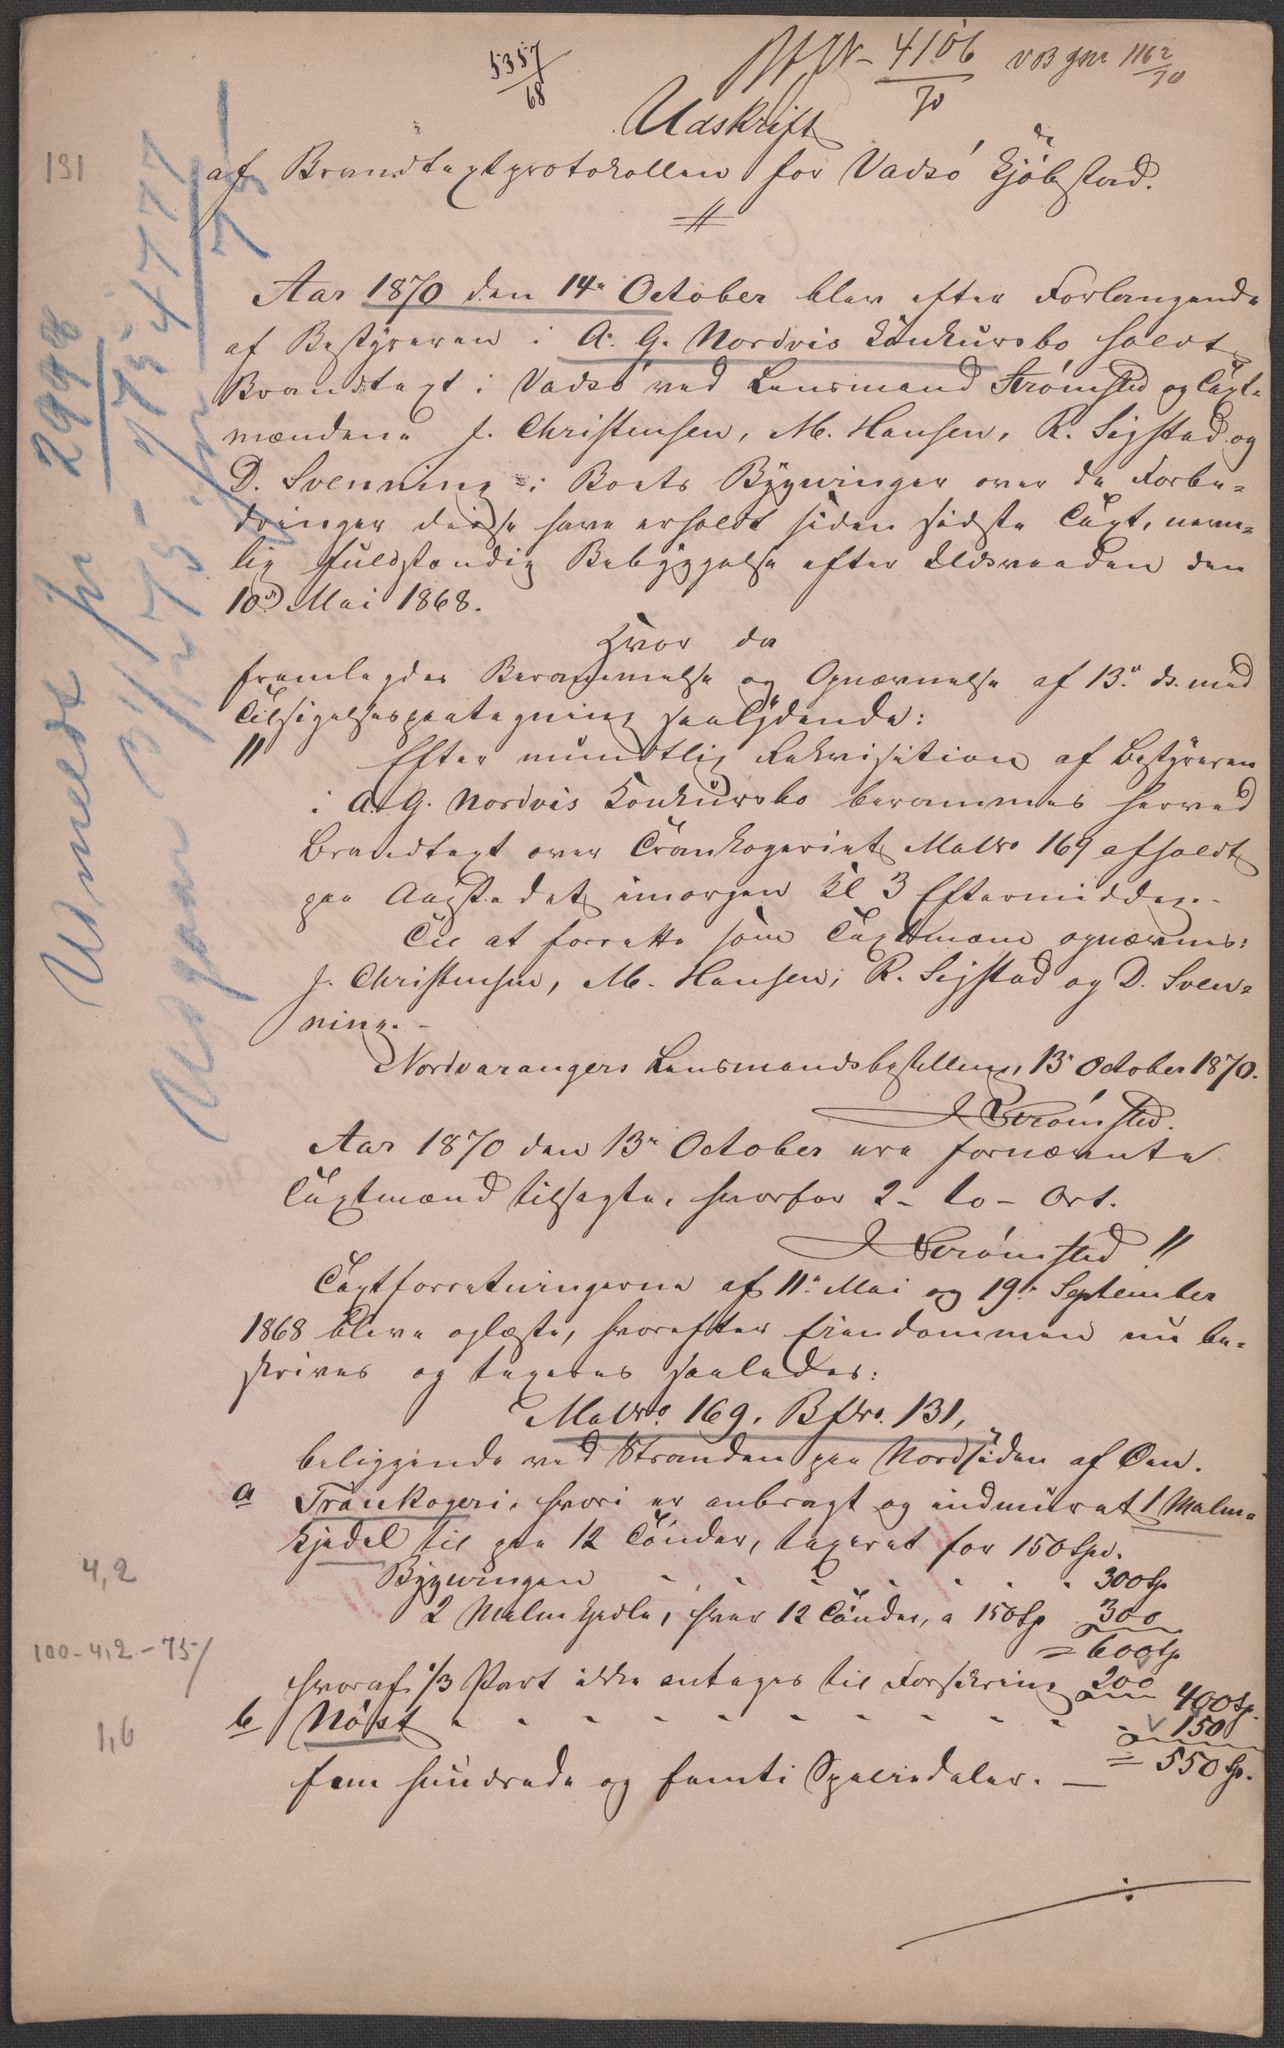 5357/68
4106/70 VB gnr 1162/70
Udskrift
131
af Brandtaxtprotokollen for Vadsö Kjöbstad.
Aar 1870 den 14de October blev efter Forlangende
af Bestyreren i A. G. Nordvis Konkursbo holdt
Brandtaxt i Vadsö ved Lensmand Strömsted og Taxt-
mændene J. Christensen, M. Hansen, R. Sigstad og
D. Svenning i Boets Bygninger over de Forbe-
dringer disse have erholdt siden sidste Taxt, nem-
lig fuldstændig Bebyggelse efter Ildsvaaden den
10de Mai 1868.
Hvor da
fremlagdes Berammelse og Opnævnelse af 13de ds. med
Tilsigelsespaategning saalydende:
" Efter mundtlig Rekvisition af Bestyreren
i A. G. Nordvis Konkursbo berammes herved
Brandtaxt over Trankogeriet Mat No 169 afholdt
paa Aastedet imorgen Kl 3 Eftermiddag.
Til at forrette som Taxtmænd opnævnes:
J. Christensen, M. Hansen, R. Sigstad og D. Sven-
ning. -
Nordvarangers Lensmandsbestilling, 13 October 1870.
J Strömsted.
Aar 1870 den 13de October ere fornævnte
Taxtmænd tilsagte, hvorfor 2 - to - Ort.
J Strömsted "
Taxtforretningerne af 11te Mai og 19de September
1868 bleve oplæste, hvorefter Eiendommen nu be-
skrives og taxeres saaledes:
Mat No. 169. Bf No. 131,
beliggende ved Stranden paa Nordsiden af Öen.
a Trankogeri, hvori er anbragt og indmuret 1 Malm-
kjedel til paa 12 Tönder, taxeret for 150 Spd.
4,2
Bygningen . . . . . . . 300 Sp
2 Malmkjedle, hver 12 Tönder, a 150 Sp 300
= 600 Sp
100-4,2-75/
hvoraf 1/3 Part ikke antages til Forsikring 200
400 Sp.
b Nöst - - - - - - - - - - 150
1,6
= 550 Sp.
fem hundrede og femti Speciedaler. —
Udmeldt
2998
Udgaar 31/12 75